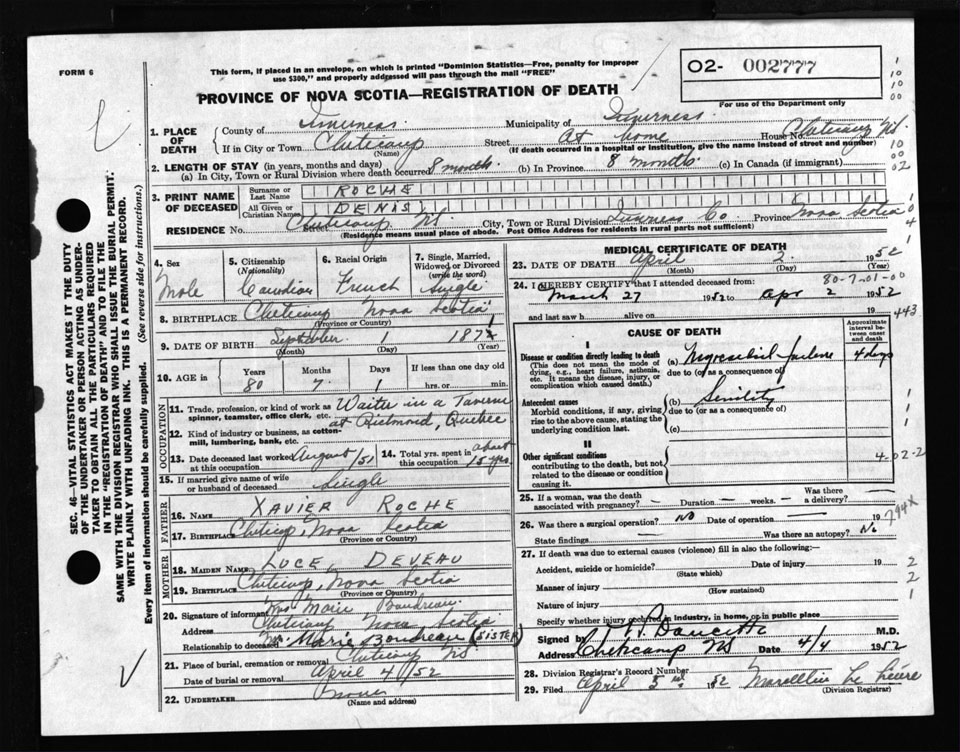 FORM 6
This form, if placed in an envelope, on which is printed "Dominion Statistics—Free, penalty for improper
use $300," and properly addressed will pass through the mail "FREE"
O2- 002777
For use of the Department only
PROVINCE OF NOVA SCOTIA—REGISTRATION OF DEATH
SEC. 46—VITAL STATISTICS ACT MAKES IT THE DUTY
OF THE UNDERTAKER OR PERSON ACTING AS UNDER-
TAKER TO OBTAIN ALL THE PARTICULARS REQUIRED
IN THE "REGISTRATION OF DEATH" AND TO FILE THE
SAME WITH THE DIVISION REGISTRAR WHO SHALL ISSUE THE BURIAL PERMIT.
WRITE PLAINLY WITH UNFADING INK. THIS IS A PERMANENT RECORD.
Every item of information should be carefully supplied. (See reverse side for instructions.)
1. PLACE OF DEATH
County of Inverness Municipality of Inverness
If in City or Town Cheticamp (Name) Street At home House No. Cheticamp NS.
(If death occurred in a hospital or institution, give the name instead of street and number)
2. LENGTH OF STAY (in years, months and days)
(a) In City, Town or Rural Division where death occurred 8 months (b) In Province 8 months (c) In Canada (if immigrant)
3. PRINT NAME OF DECEASED
Surname or Last Name ROCHE
All Given or Christian Names DENIS
RESIDENCE No. Cheticamp NS. City, Town or Rural Division Inverness Co Province Nova Scotia
(Residence means usual place of abode. Post Office Address for residents in rural parts not sufficient)
4. Sex Male
5. Citizenship (Nationality) Canadian
6. Racial Origin French
7. Single, Married, Widowed or Divorced (write the word) Single
8. BIRTHPLACE Cheticamp Nova Scotia
(Province or Country)
9. DATE OF BIRTH September 1 1871
(Month) (Day) (Year)
10. AGE in Years 80 Months 7 Days 1 If less than one day old hrs. or min.
OCCUPATION
11. Trade, profession, or kind of work as spinner, teamster, office clerk, etc. Waiter in a Taverne
at Richmond, Quebec
12. Kind of industry or business, as cotton-mill, lumbering, bank, etc.
13. Date deceased last worked at this occupation August/51 14. Total yrs. spent in this occupation about 15 yrs.
15. If married give name of wife or husband of deceased Single
FATHER
16. NAME XAVIER ROCHE
17. BIRTHPLACE Cheticamp, Nova Scotia
(Province or Country)
MOTHER
18. MAIDEN NAME LUCE DEVEAU
19. BIRTHPLACE Cheticamp, Nova Scotia
(Province or Country)
20. Signature of informant Mrs Marie Boudreau
Address Cheticamp Nova Scotia
Relationship to deceased Mrs. Marie Boudreau (SISTER)
21. Place of burial, cremation or removal Cheticamp NS
Date of burial or removal April 4/52
22. UNDERTAKER None
(Name and address)
MEDICAL CERTIFICATE OF DEATH
23. DATE OF DEATH April 2. 1952
(Month) (Day) (Year)
24. I HEREBY CERTIFY that I attended deceased from: 80-7-01-00
March 27 1952 to apr 2 1952
and last saw h alive on 19 443
CAUSE OF DEATH
Approximate interval between onset and death
I
Disease or condition directly leading to death (a) Myocardial failure 4 days
(This does not mean the mode of dying, e.g., heart failure, asthenia, etc. It means the disease, injury, or complication which caused death.)
due to (or as a consequence of)
Antecedent causes (b) Senility
Morbid conditions, if any, giving rise to the above cause, stating the underlying condition last.
due to (or as a consequence of)
(c)
II
Other significant conditions
contributing to the death, but not related to the disease or condition causing it.
4-02-2
25. If a woman, was the death associated with pregnancy? — Duration — weeks. — Was there a delivery? —
26. Was there surgical operation? No Date of operation — 19 794X
State findings — Was there an autopsy? No
27. If death was due to external causes (violence) fill in also the following:—
Accident, suicide or homicide? Date of injury 19
(State which)
Manner of injury
(How sustained)
Nature of injury
Specify whether injury occurred in industry, in home, or in public place
Signed by M.D.
Address Cheticamp NS Date 4/4 1952
28. Division Registrar's Record Number
29. Filed April 5 1952
(Division Registrar)